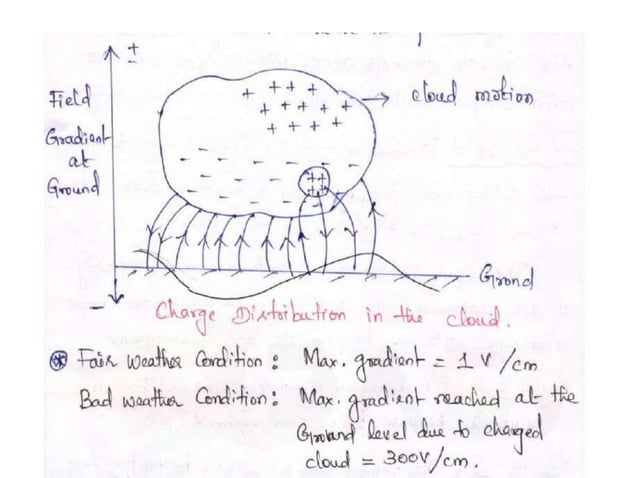 +
Field
Gradient
at
Ground
-
+ ++ +
+ + + + +
+ + + +
cloud motion
- - - - -
- - - -
- - -
++
++
Grond
Charge Distribution in the cloud.
Fair Weather Condition : Max. gradient = 1 V/cm
Bad weather Condition : Max. gradient reached at the
Ground level due to charged
cloud = 300V/cm.